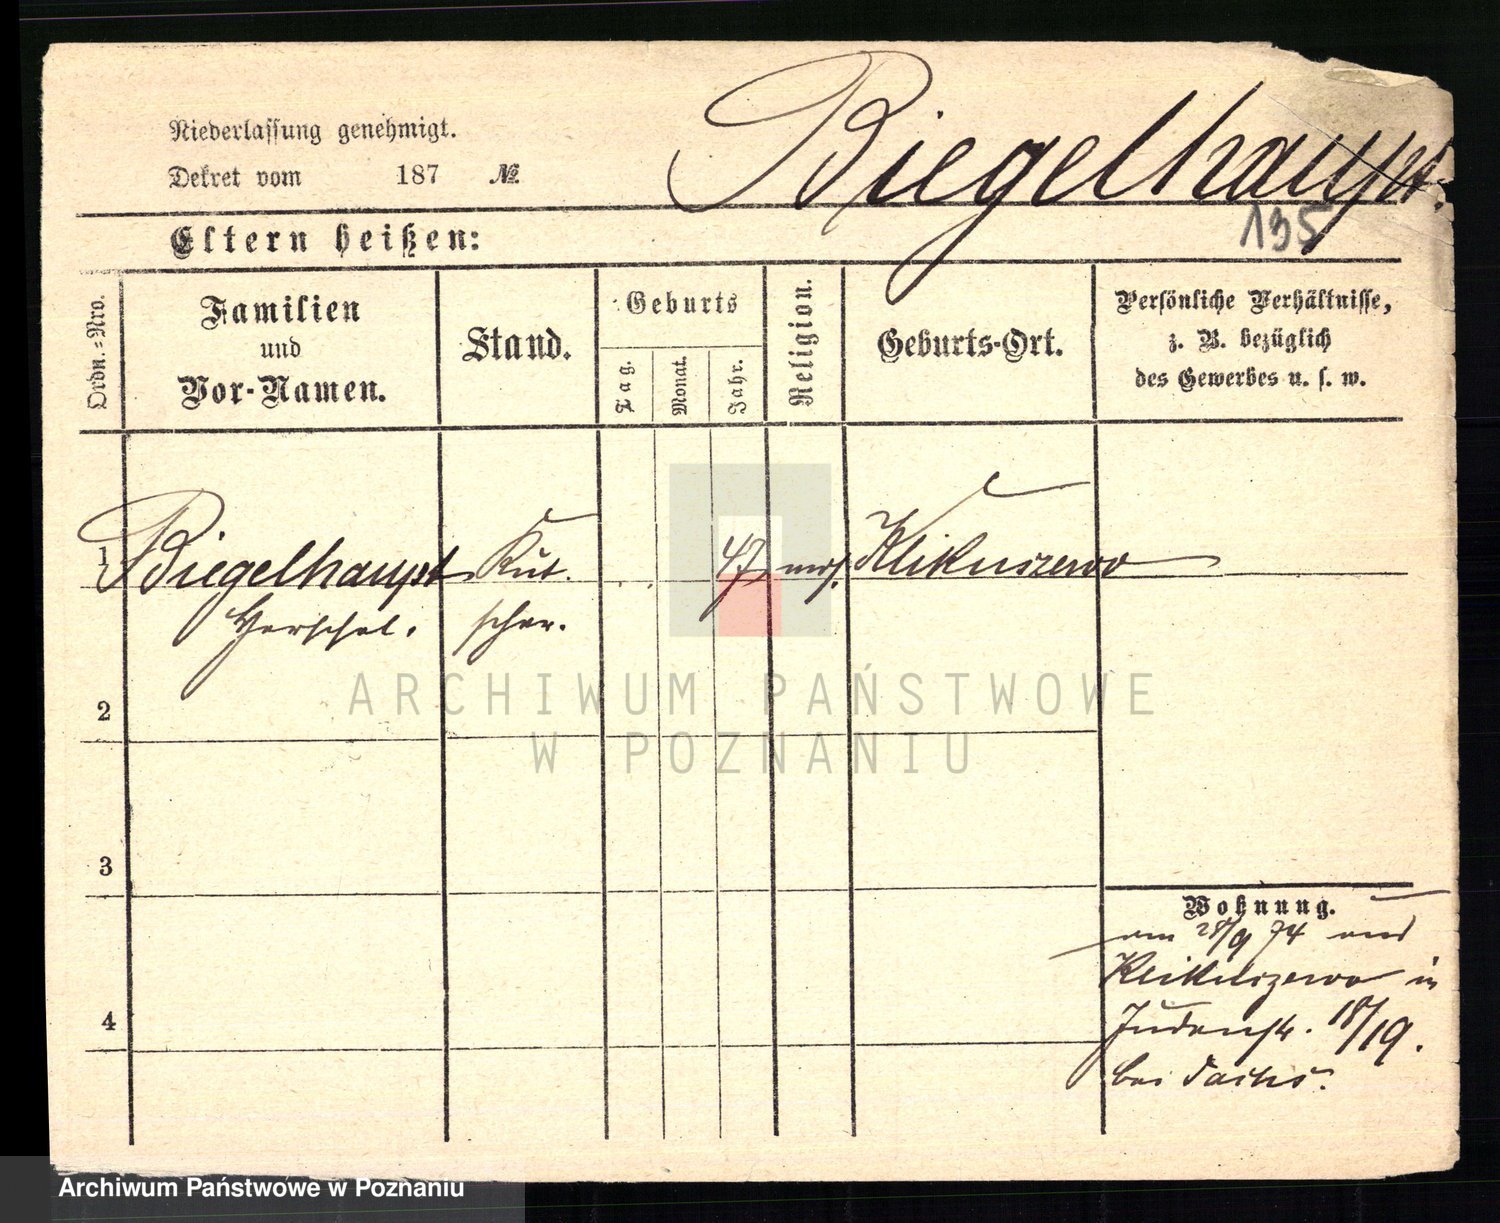 Niederlassung genehmigt.
Dekret vom 187 №
Biegelhaupt.
195
Eltern heißen:
Ordn.=Nro.
Familien
und
Vor-Namen.
Stand.
Geburts
Tag.
Monat.
Jahr.
Religion.
Geburts-Ort.
Persönliche Verhältnisse,
z. B. bezüglich
des Gewerbes u. s. w.
1 Biegelhaupt Kut- 47 mos. Klikuszewo
Herschel. scher.
2
3
4
Wohnung.
am 28/9 74 aus
Klikuszewo in
Judenstr. 18/19.
bei
ARCHIWUM PAŃSTWOWE
W POZNANIU
Archiwum Państwowe w Poznaniu